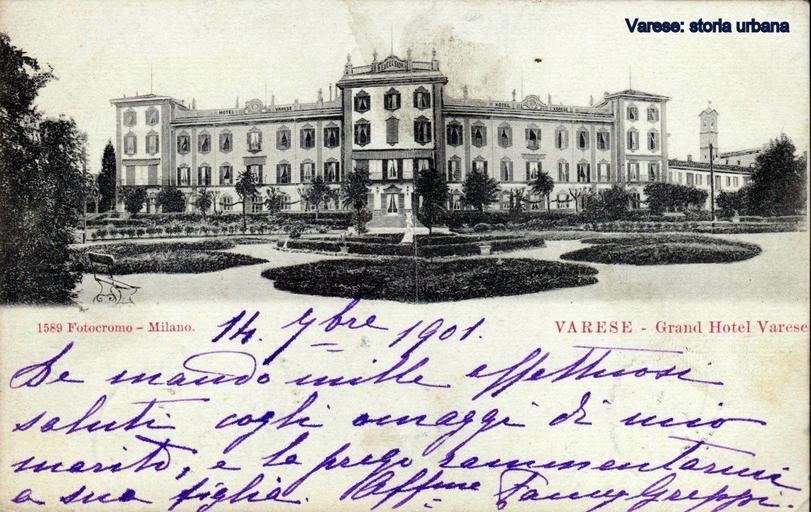 Varese: storia urbana
EXCELSIOR
HOTEL VARESE HOTEL VARESE
1589 Fotocromo - Milano.
VARESE - Grand Hotel Varese
14. 7bre 1901.
Le mando mille affettuosi
saluti cogli omaggi di mio
marito, e la prego rammentarmi
a sua figlia. Affme Fanny Greppi.